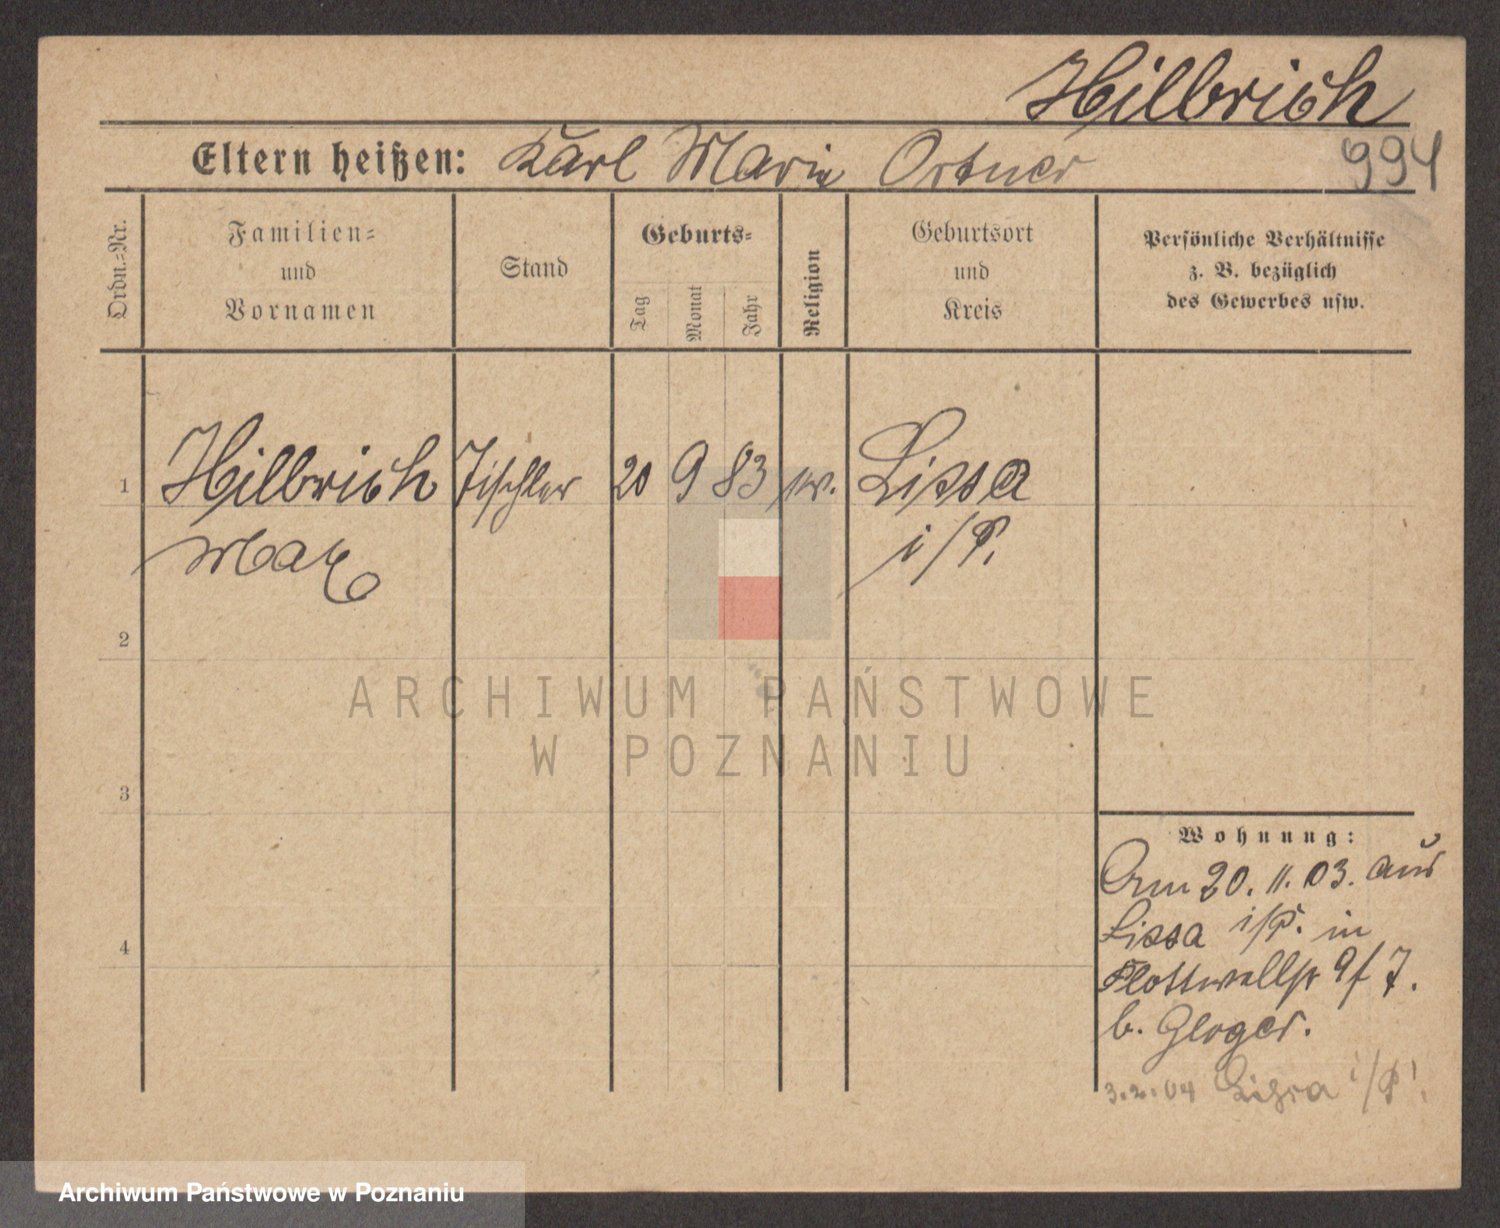 Hilbrich
Eltern heißen: Karl Marie Ortner
994
Ordn.-Nr.
Familien-
und
Vornamen
Stand
Geburts-
Tag
Monat
Jahr
Religion
Geburtsort
und
Kreis
Persönliche Verhältnisse
z. B. bezüglich
des Gewerbes usw.
1 Hilbrich Tischler 20 9 83 ev. Lissa
Max i/P.
2
3
4
Wohnung:
Am 20. 11. 03. aus
Lissa i/P. in
Flottwellstr 9 7.
b. Gloger.
3.2.04 Lissa i/P!
ARCHIWUM PAŃSTWOWE
W POZNANIU
Archiwum Państwowe w Poznaniu